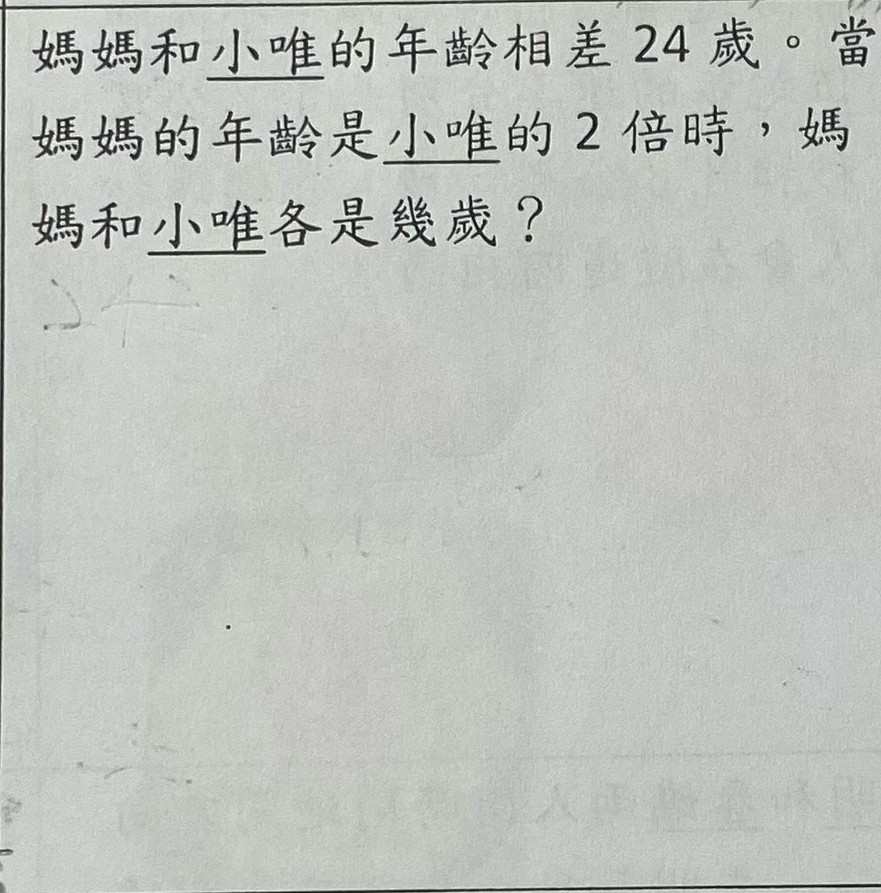 媽媽和小唯的年齡相差 24 歲。當
媽媽的年齡是小唯的 2 倍時，媽
媽和小唯各是幾歲？